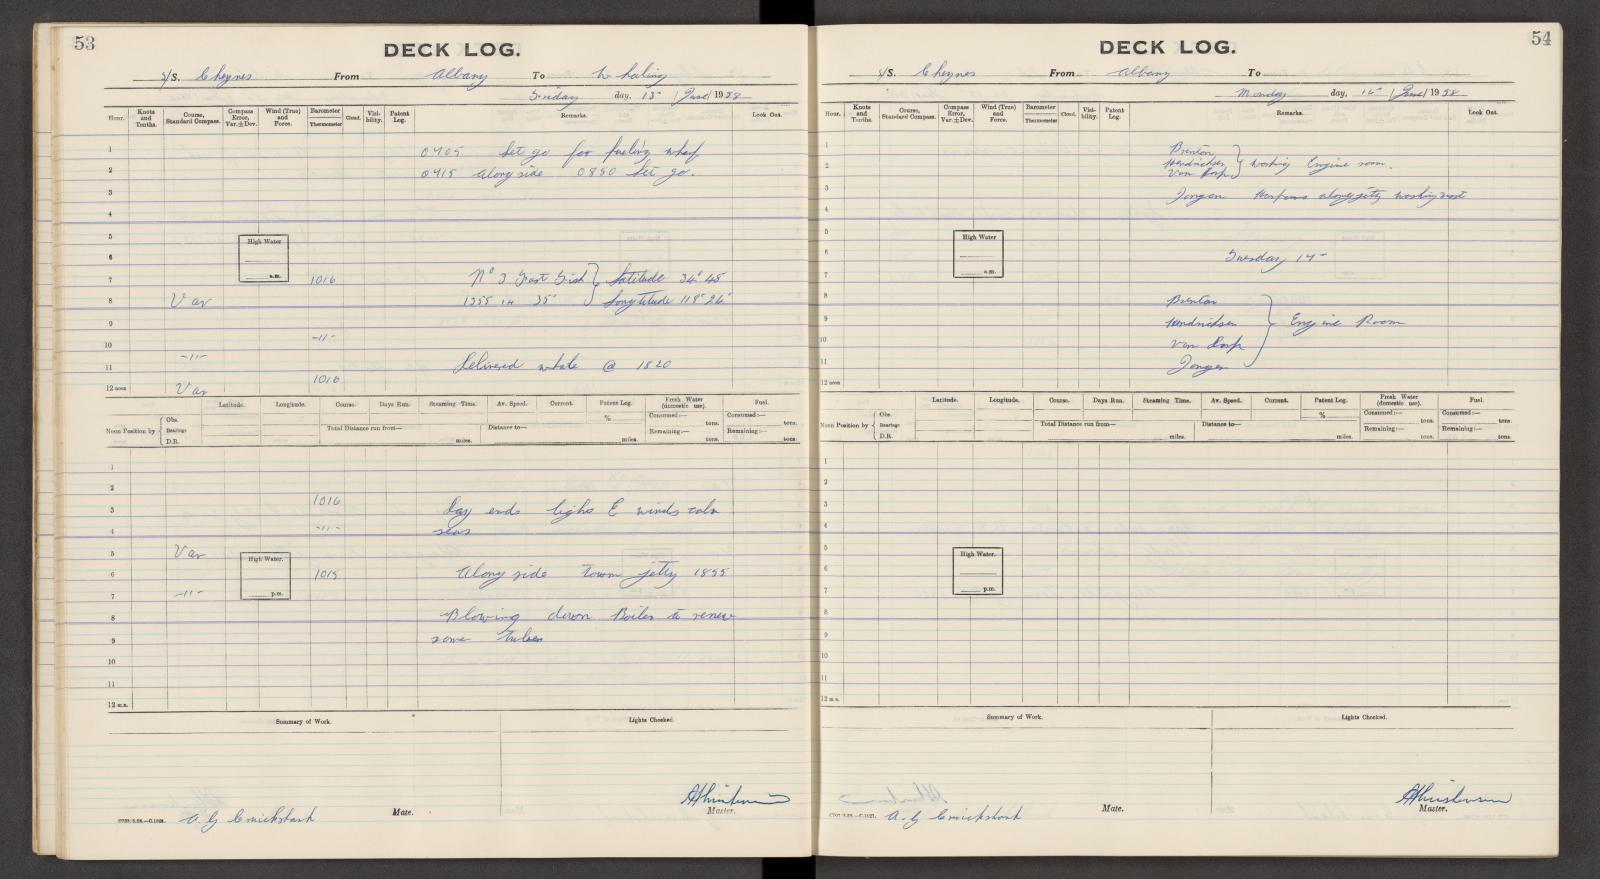 53
DECK LOG.
S/S. Cheynes From Albany To Whaling
day, 15" / June / 1958
Hour. Knots and Tenths. Course, Standard Compass. Compass Error, Var.±Dev. Wind (True) and Force. Barometer Thermometer Cloud. Visibility. Patent Log. Remarks. Look Out.
1 0705 Let go for fueling wharf
2 0715 Alongside 0850 Let go.
3
4
5 High Water
6 a.m.
7 1016 No 3 Fast Fish } Latitude 34° 45'
8 Var 1355 14 35' Longtitude 118° 26'
9
10 -11-
11 -11- Delivered whale @ 1820
12 noon Var 1016
Latitude. Longitude. Course. Days Run. Steaming Time. Av. Speed. Current. Patent Log. Fresh Water (domestic use). Fuel.
Noon Position by { Obs. Bearings D.R. Total Distance run from— miles. Distance to— miles. % Consumed:— tons. Remaining:— tons. Consumed:— tons. Remaining:— tons.
1
2 1016
3 Day ends light E winds calm
4 -11- seas
5 Var High Water.
6 1015 Along side town jetty 1855
7 -11- p.m.
8 Blowing down Boiler to renew
9 some tubes
10
11
12 m.n.
Summary of Work. Lights Checked.
A. G Cruickshank Mate. Master.
54
DECK LOG.
S/S. Cheynes From Albany To
Monday day, 16" / June / 1958
Hour. Knots and Tenths. Course, Standard Compass. Compass Error, Var.±Dev. Wind (True) and Force. Barometer Thermometer Cloud. Visibility. Patent Log. Remarks. Look Out.
1 Brenton
2 Hendrichsen } working Engine room.
Van Dorp
3 Jongen alongjetty
4
5
6 High Water Tuesday 17"
7 a.m.
8 Brenton
9 Hendrichsen } Engine Room
10 Van Dorp
11 Jongen
12 noon
Latitude. Longitude. Course. Days Run. Steaming Time. Av. Speed. Current. Patent Log. Fresh Water (domestic use). Fuel.
Noon Position by { Obs. Bearings D.R. Total Distance run from— miles. Distance to— miles. % Consumed:— tons. Remaining:— tons. Consumed:— tons. Remaining:— tons.
1
2
3
4
5 High Water.
6
7 p.m.
8
9
10
11
12 m.n.
Summary of Work. Lights Checked.
A. G Cruickshank Mate. Master.